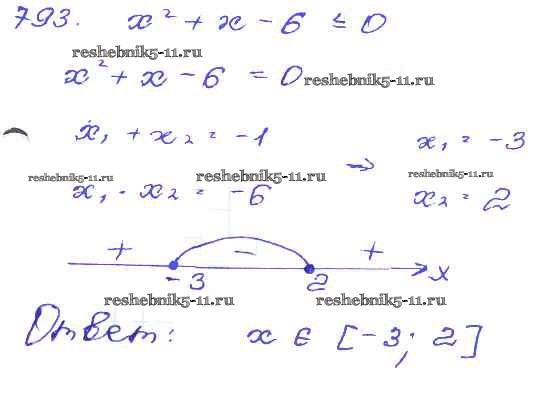 793. x² + x - 6 ≤ 0
reshebnik5-11.ru
x² + x - 6 = 0 reshebnik5-11.ru
x₁ + x₂ = -1
x₁ = -3
→
reshebnik5-11.ru reshebnik5-11.ru reshebnik5-11.ru
x₁ · x₂ = -6
x₂ = 2
+ - +
-3 2 x
reshebnik5-11.ru reshebnik5-11.ru
Ответ: x ∈ [-3; 2]